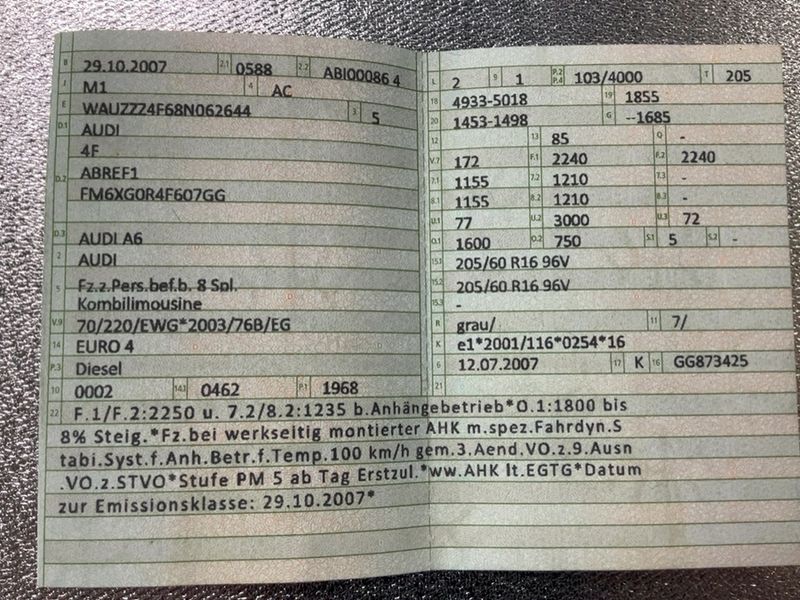 B 29.10.2007 2.1 0588 2.2 ABI00086 4
J M1 4 AC
E WAUZZZ4F68N062644 3 5
D.1 AUDI
4F
D.2 ABREF1
FM6XG0R4F607GG
D.3 AUDI A6
2 AUDI
5 Fz.z.Pers.bef.b. 8 Spl.
Kombilimousine
V.9 70/220/EWG*2003/76B/EG
14 EURO 4
P.3 Diesel
10 0002 14.1 0462 P.1 1968
L 2 9 1 P.2 P.4 103/4000 T 205
18 4933-5018 19 1855
20 1453-1498 G --1685
12 13 85 Q -
V.7 172 F.1 2240 F.2 2240
7.1 1155 7.2 1210 7.3 -
8.1 1155 8.2 1210 8.3 -
U.1 77 U.2 3000 U.3 72
O.1 1600 O.2 750 S.1 5 S.2 -
15.1 205/60 R16 96V
15.2 205/60 R16 96V
15.3 -
R grau/ 11 7/
K e1*2001/116*0254*16
6 12.07.2007 17 K 16 GG873425
21
22 F.1/F.2:2250 u. 7.2/8.2:1235 b.Anhängebetrieb*O.1:1800 bis
8% Steig.*Fz.bei werkseitig montierter AHK m.spez.Fahrdyn.S
tabi.Syst.f.Anh.Betr.f.Temp.100 km/h gem.3.Aend.VO.z.9.Ausn
.VO.z.STVO*Stufe PM 5 ab Tag Erstzul.*ww.AHK lt.EGTG*Datum
zur Emissionsklasse: 29.10.2007*